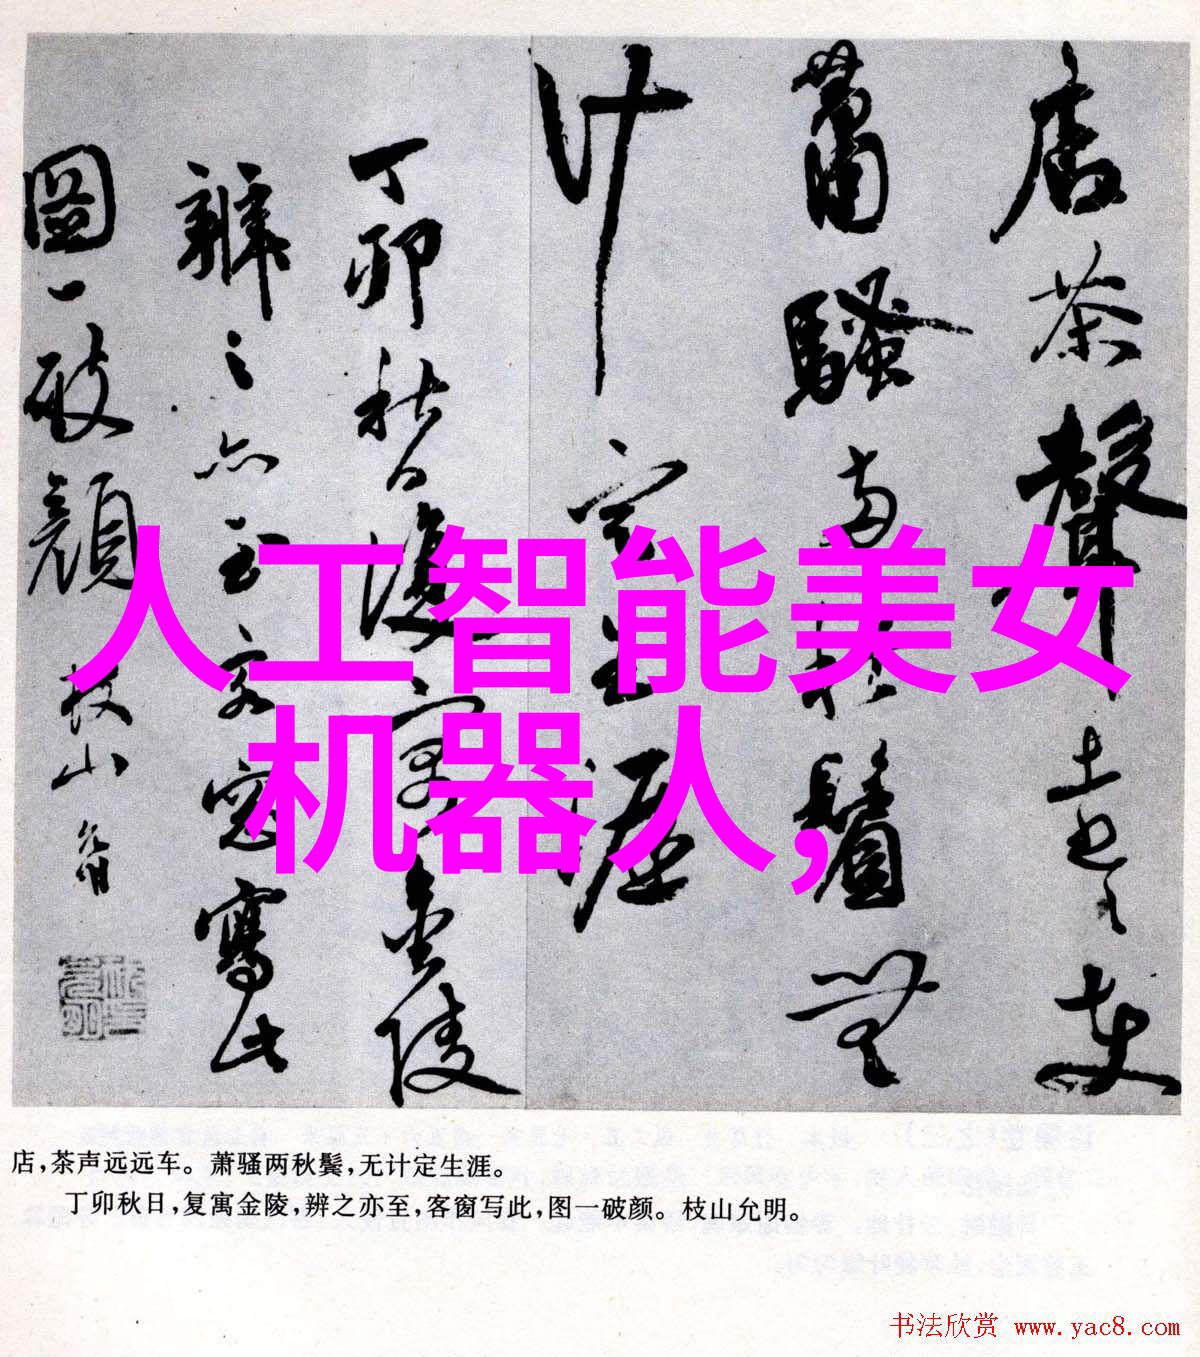 店茶聲遠遠車
蕭騷兩秋鬢無
計定生涯
丁卯秋日復寓金陵
辨之亦至客窓寫此
圖一破顏 枝山允明
人工智能美女
机器人,
店,茶声远远车。萧骚两秋鬓,无计定生涯。
丁卯秋日,复寓金陵,辨之亦至,客窗写此,图一破颜。枝山允明。
书法欣赏 www.yac8.com